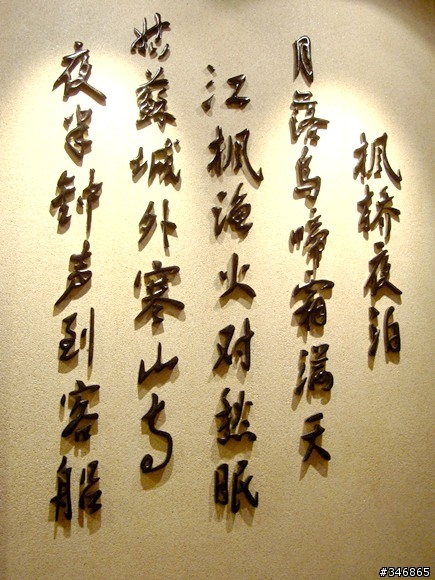 枫桥夜泊
月落乌啼霜满天
江枫渔火对愁眠
姑蘇城外寒山寺
夜半钟声到客船
#346865